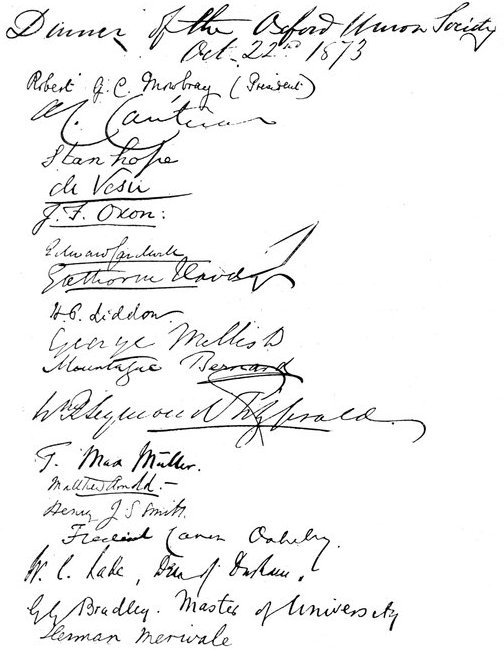 Dinner of the Oxford Union Society
Oct. 22nd 1873
Robert G. C. Mowbray (President)
A. C. Cantuar
Stanhope
de Vesci
J. F. Oxon:
Edward Cardwell
Gathorne Hardy
H. P. Liddon.
George Mellish
Mountague Bernard
Wm R Seymour V Fitzgerald.
F. Max Müller.
Matthew Arnold.-
Henry J. S Smith.
Frederick Canon Oakeley.
W. C. Lake, Dean of Durham.
G G Bradley. Master of University
Herman Merivale